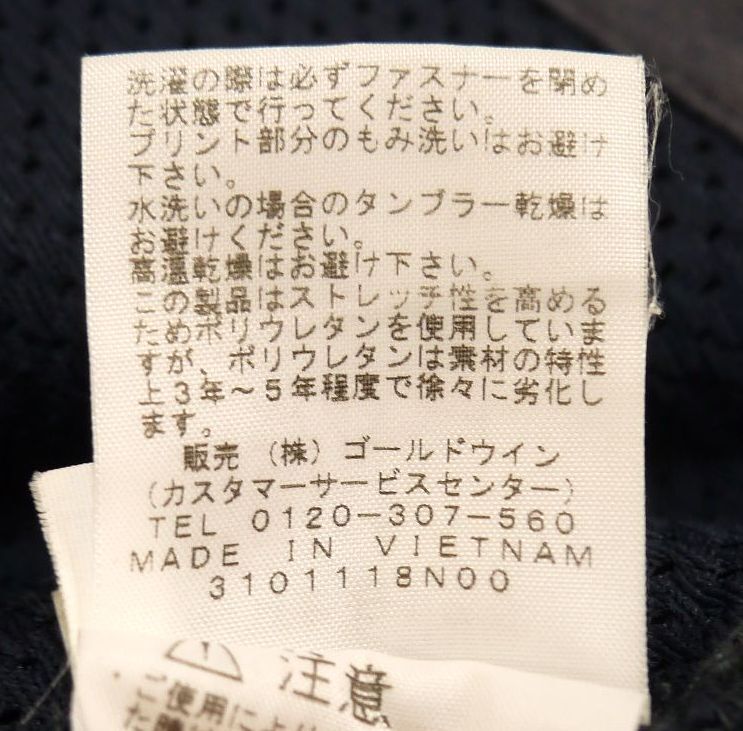 洗濯の際は必ずファスナーを閉め
た状態で行ってください。
プリント部分のもみ洗いはお避け
下さい。
水洗いの場合のタンブラー乾燥は
お避けください。
高温乾燥はお避け下さい。
この製品はストレッチ性を高める
ためポリウレタンを使用していま
すが、ポリウレタンは素材の特性
上3年～5年程度で徐々に劣化し
ます。
販売 (株) ゴールドウイン
(カスタマーサービスセンター)
TEL 0120-307-560
MADE IN VIETNAM
3101118N00
注意
ご使用により